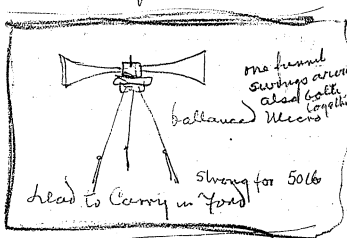 one funnel
swings around
also both
together
ballanced Micro
Strong for 50 lb
head to Carry in Ford